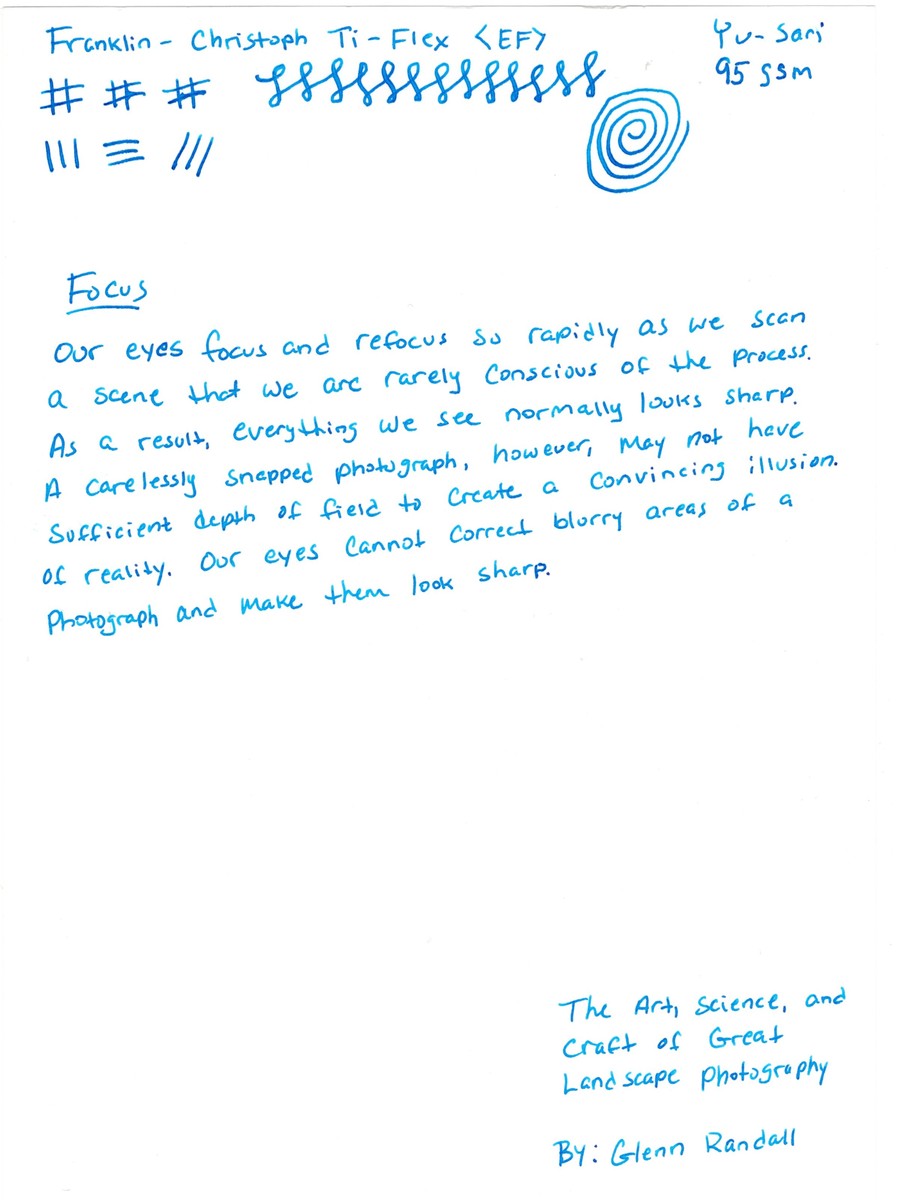 Franklin - Christoph Ti - Flex <EF>
Yu - Sari
95 gsm
Focus
Our eyes focus and refocus so rapidly as we scan
a scene that we are rarely conscious of the process.
As a result, everything we see normally looks sharp.
A carelessly snapped photograph, however, may not have
sufficient depth of field to create a convincing illusion.
of reality. Our eyes cannot correct blurry areas of a
photograph and make them look sharp.
The Art, Science, and
Craft of Great
Landscape Photography
By: Glenn Randall